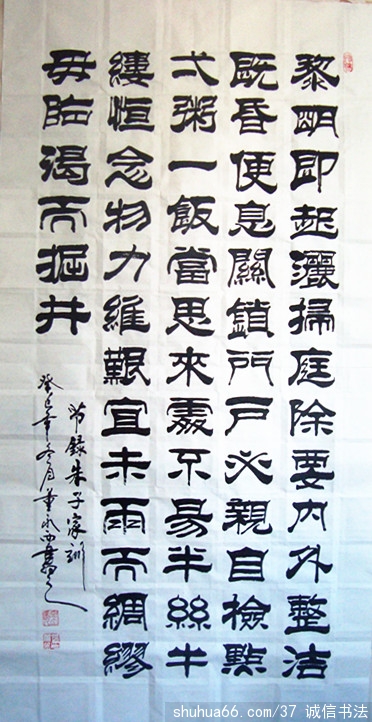 黎明即起灑掃庭除要內外整洁
既昏便息關鎖門戶必親自檢點
弌粥一飯當思來處不易半絲半
縷恒念物力維艱宜未雨而綢繆
毋臨渴而掘井
节錄朱子家訓
癸巳年冬月
shuhua66.com/37 诚信书法